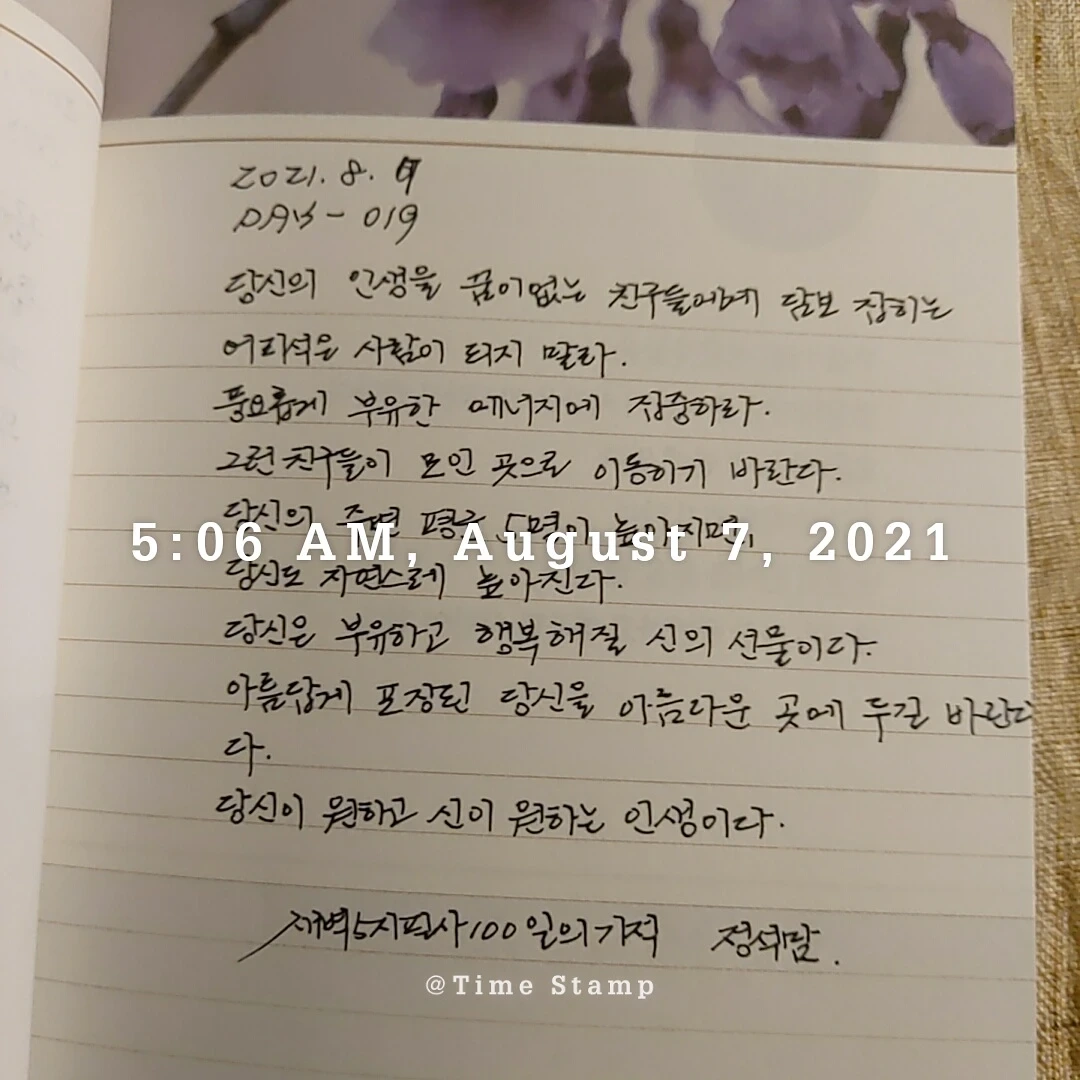 2021. 8. 7
DAY - 019
당신의 인생을 꿈이없는 친구들에게 담보 잡히는
어리석은 사람이 되지 말라.
풍요롭게 부유한 에너지에 집중하라.
그런 친구들이 모인 곳으로 이동하기 바란다.
당신의 주변 평균 5명이 높아지면,
5:06 AM, August 7, 2021
당신도 자연스레 높아진다.
당신은 부유하고 행복해질 신의 선물이다.
아름답게 포장된 당신을 아름다운 곳에 두길 바란다
다.
당신이 원하고 신이 원하는 인생이다.
새벽5시필사100일의기적 정세담.
@Time Stamp